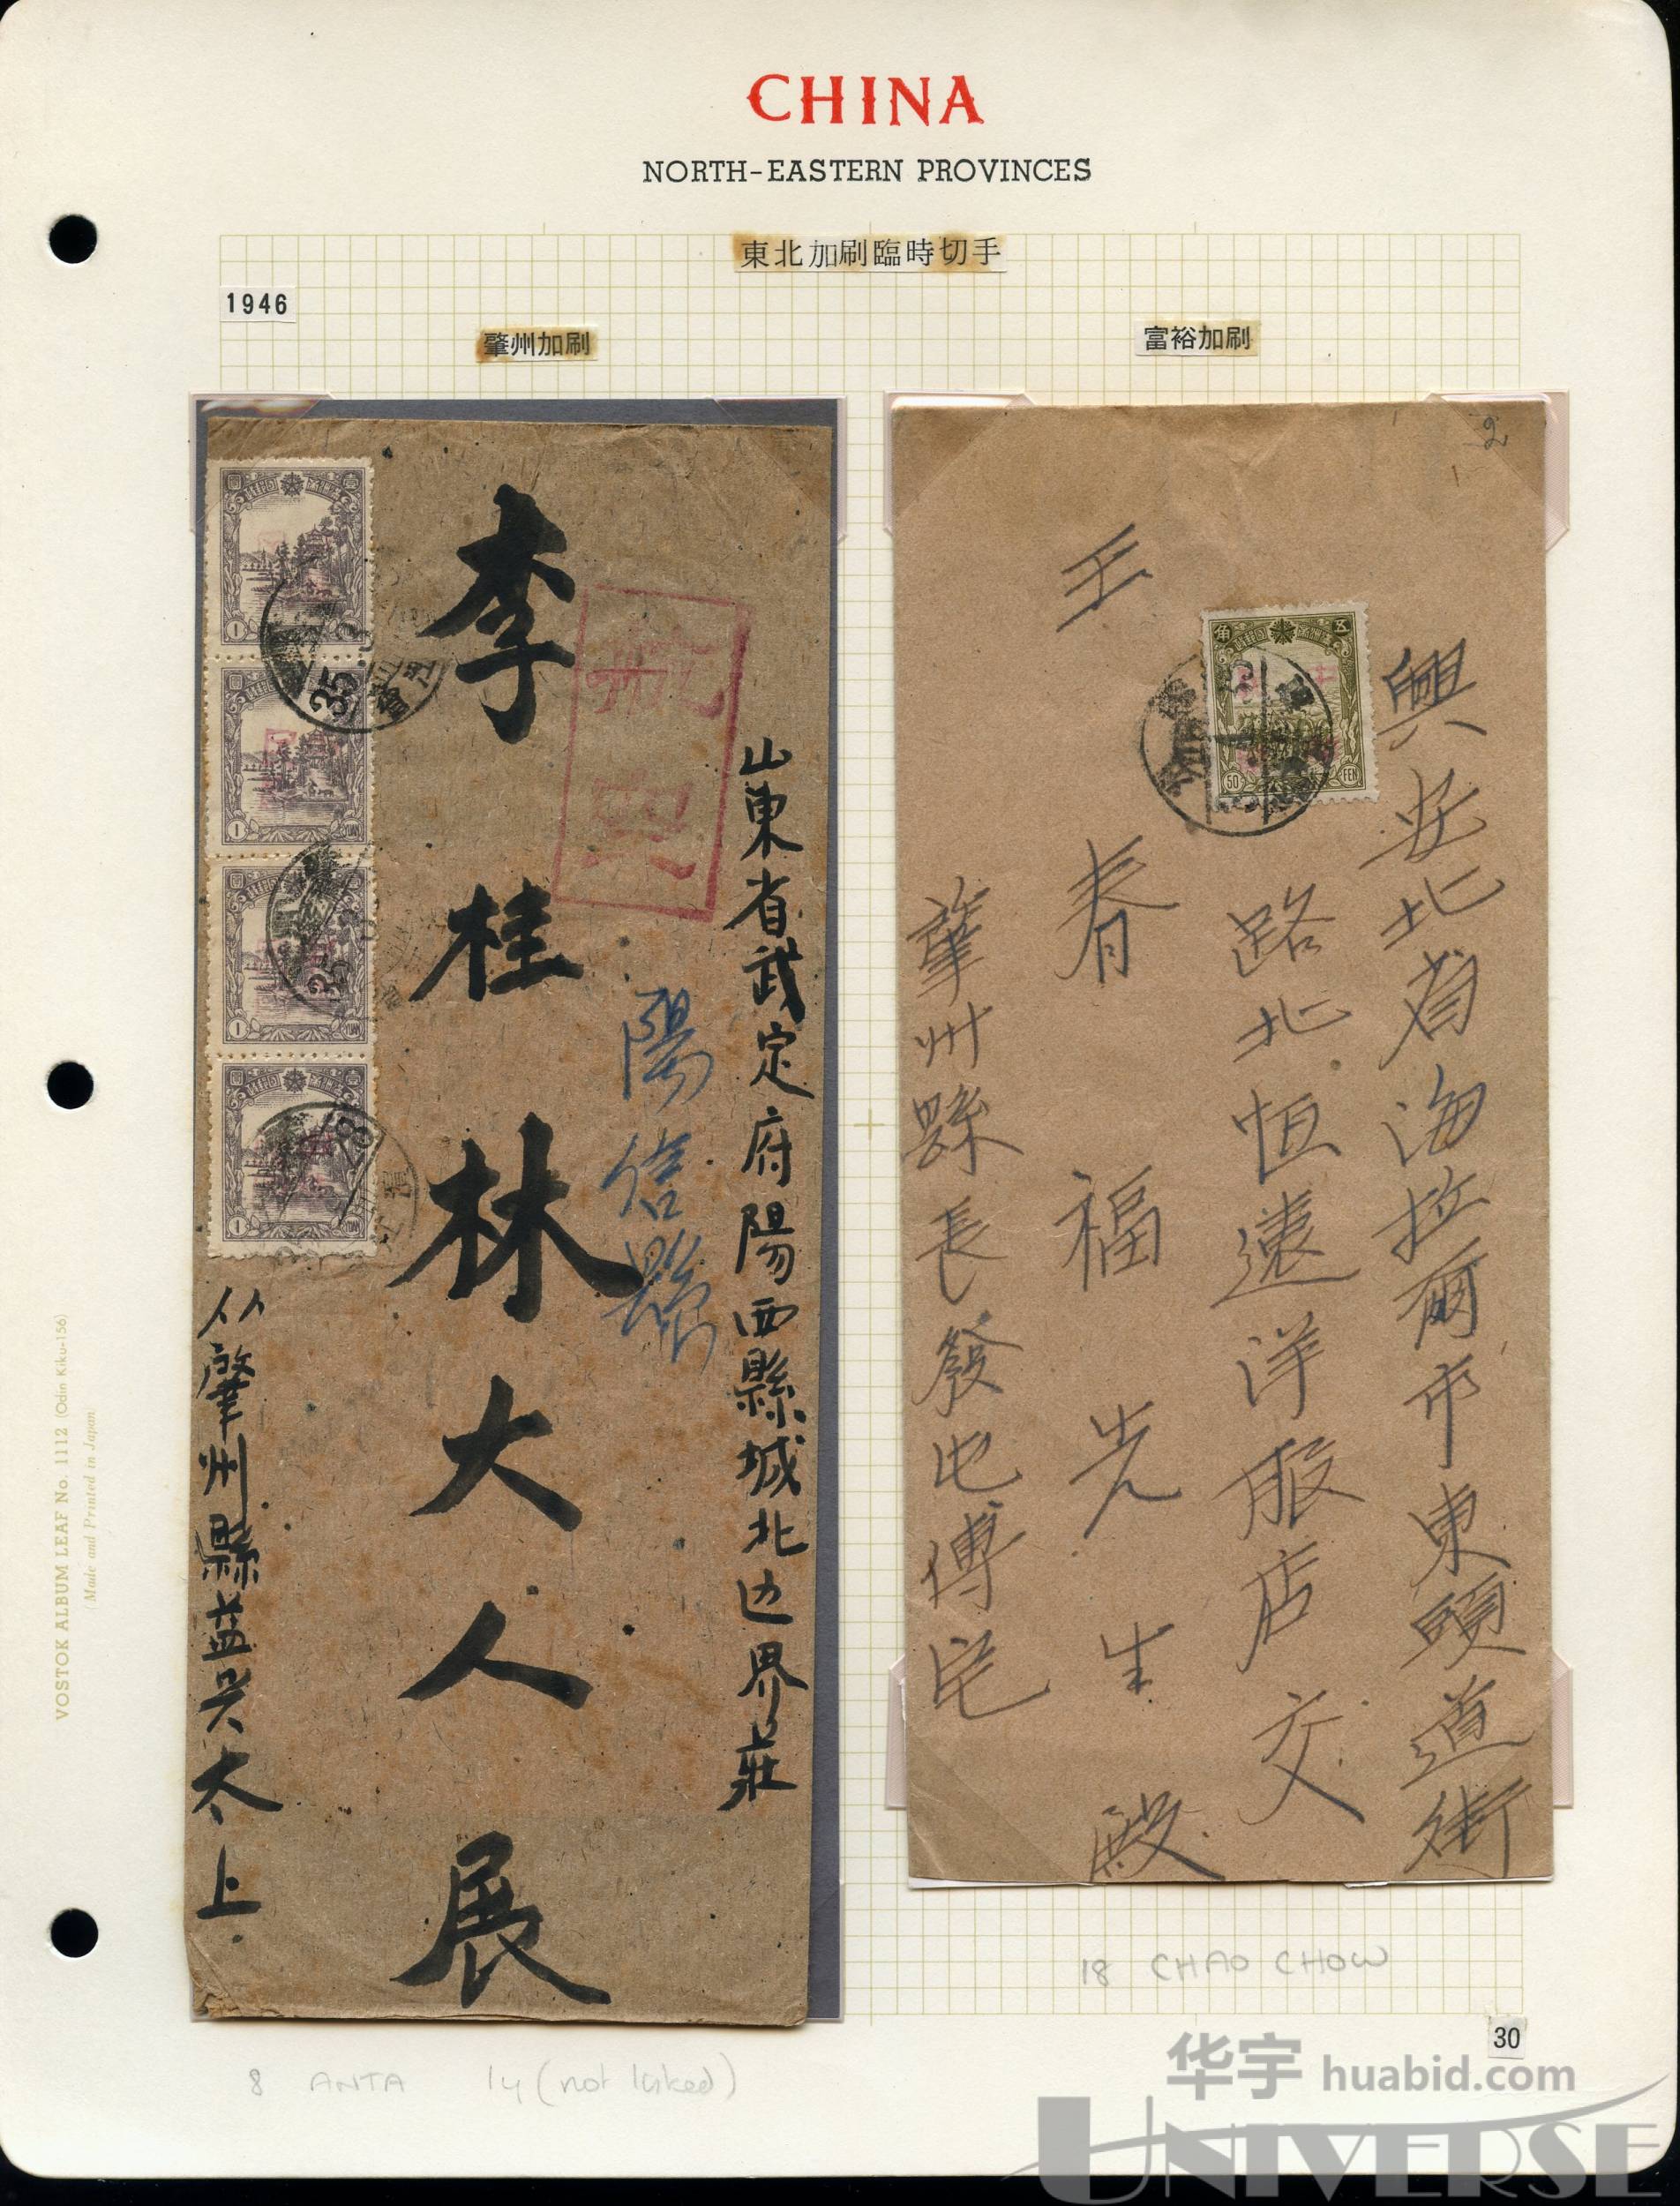 CHINA
NORTH-EASTERN PROVINCES
東北加刷臨時切手
1946
肇州加刷
富裕加刷
山東省武定府陽西縣城北边界莊
陽信縣
李桂林大人展
从肇州縣益興太上
1
1 YUAN
1 YUAN
1 YUAN
35
35
28
2
興安北省海拉爾市東頭道街
路北恒遠洋服店交
王春福先生殿
肇州縣長發屯傅宅
五角
50 FEN
18 CHAO CHOW
30
8 ANTA 14 (not listed)
VOSTOK ALBUM LEAF No. 1112 (Odin Kiku-156)
(Made and Printed in Japan)
华宇 huabid.com
UNIVERSE